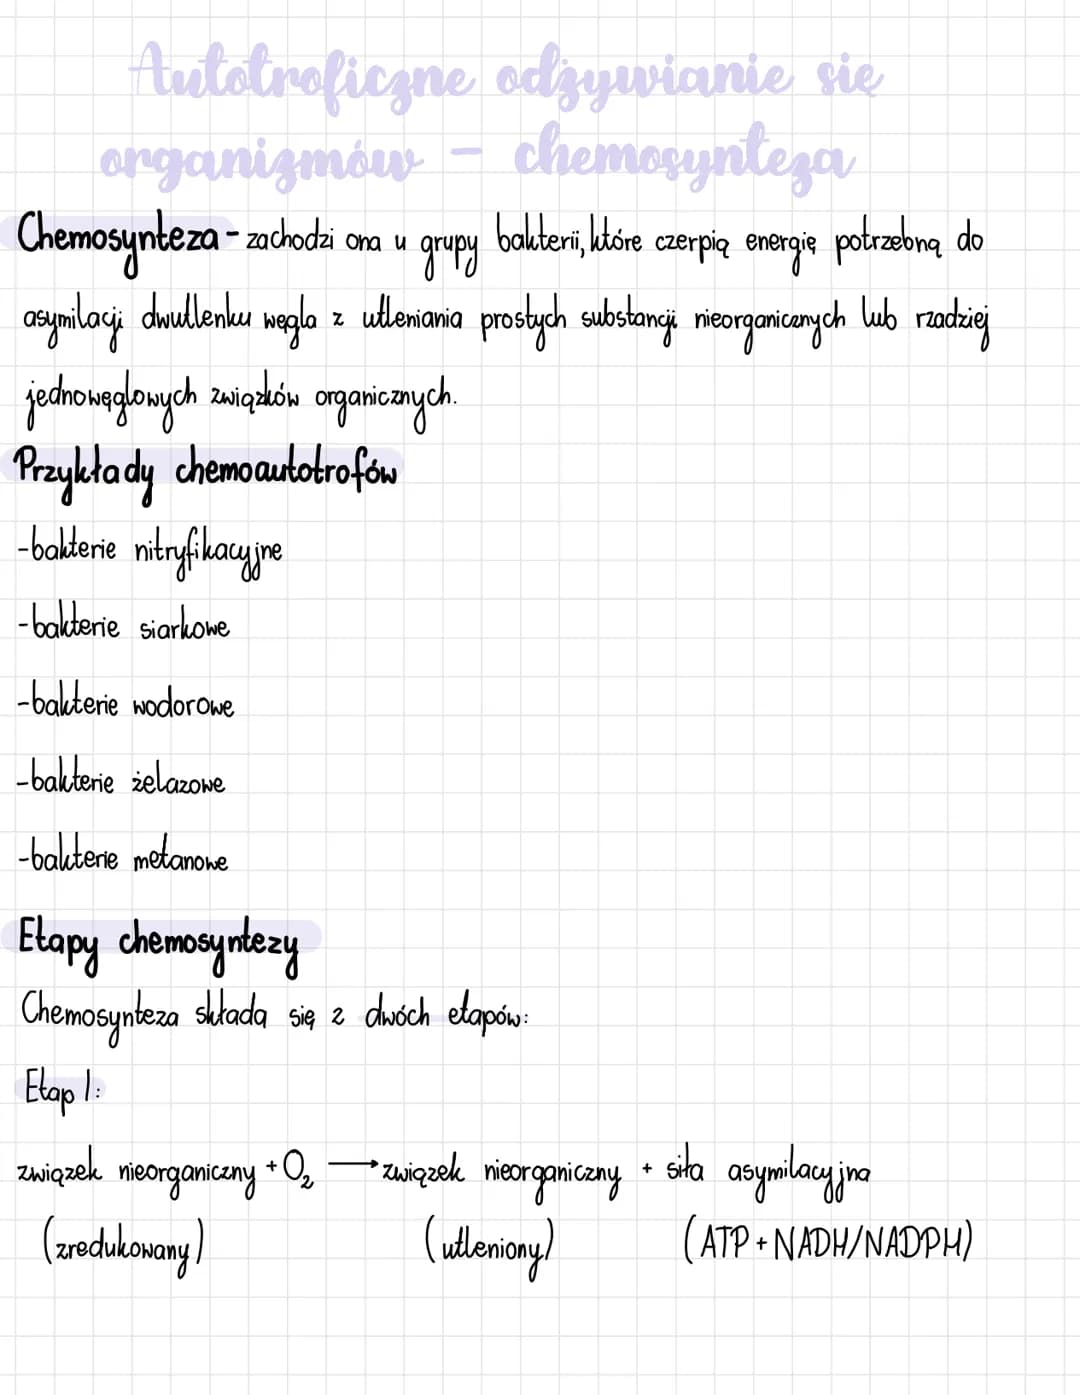 Autotroficzne odżywianie się
organizmów - chemosynteza
Chemosynteza - zachodzi ona u grupy bakterii, które czerpią energię potrzebną do
asymilacji dwutlenku węgla z utleniania prostych substancji nieorganicznych lub rzadziej
jednowęglowych związków organicznych.
Przykłady chemoautotrofów
-bakterie nitryfikacyjne
-bakterie siarkowe
-bakterie wodorowe
-bakterie żelazowe
-bakterie metanowe
Etapy chemosyntezy
Chemosynteza składa się z dwóch etapów:
Etap 1:
związek nieorganiczny + O₂ → związek nieorganiczny + siła asymilacyjna
(zredukowany) (utleniony) (ATP + NADH/NADPH)